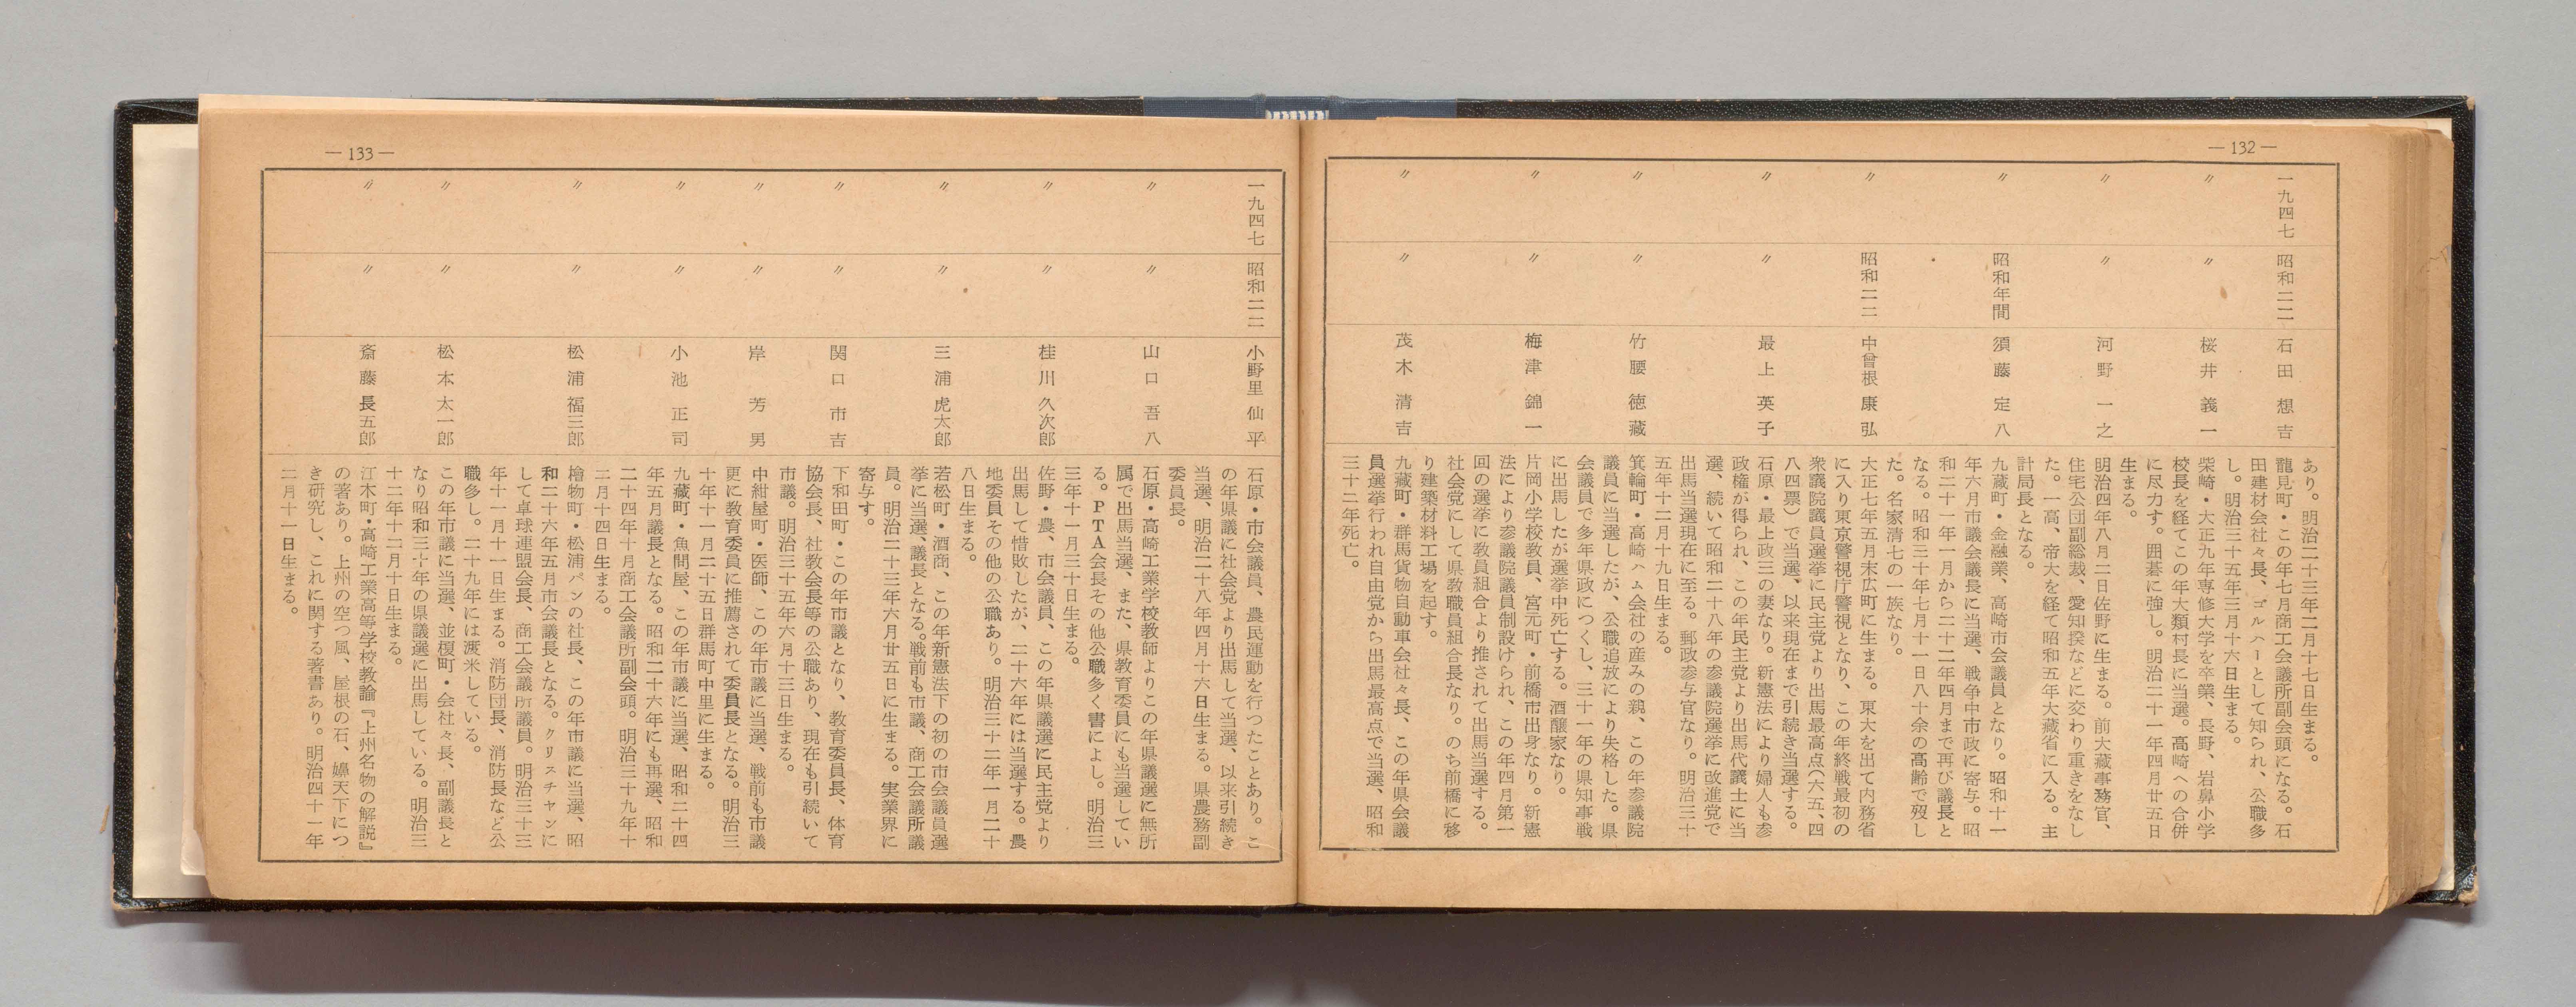 — 132 —
あり。明治二十三年二月十七日生まる。
一九四七
昭和二二
石田想吉
龍見町・この年七月商工会議所副会頭になる。石
田建材会社々長、ゴルハーとして知られ、公職多
し。明治三十五年三月十六日生まる。
〃
〃
桜井義一
柴崎・大正九年専修大学を卒業、長野、岩鼻小学
校長を経てこの年大類村長に当選。高崎への合併
に尽力す。囲碁に強し。明治二十一年四月廿五日
生まる。
〃
〃
河野一之
明治四年八月二日佐野に生まる。前大蔵事務官、
住宅公団副総裁、愛知揆などに交わり重きをなし
た。一高、帝大を経て昭和五年大蔵省に入る。主
計局長となる。
〃
昭和年間
須藤定八
九蔵町・金融業、高崎市会議員となり。昭和十一
年六月市議会議長に当選、戦争中市政に寄与。昭
和二十一年一月から二十二年四月まで再び議長と
なる。昭和三十年七月十一日八十余の高齢で歿し
た。名家清七の一族なり。
〃
昭和二二
中曾根康弘
大正七年五月末広町に生まる。東大を出て内務省
に入り東京警視庁警視となり、この年終戦最初の
衆議院議員選挙に民主党より出馬最高点(六五、四
八四票)で当選、以来現在まで引続き当選する。
〃
〃
最上英子
石原・最上政三の妻なり。新憲法により婦人も参
政権が得られ、この年民主党より出馬代議士に当
選、続いて昭和二十八年の参議院選挙に改進党で
出馬当選現在に至る。郵政参与官なり。明治三十
五年十二月十九日生まる。
〃
〃
竹腰徳藏
箕輪町・高崎ハム会社の産みの親、この年参議院
議員に当選したが、公職追放により失格した。県
会議員で多年県政につくし、三十一年の県知事戦
に出馬したが選挙中死亡する。酒醸家なり。
〃
〃
梅津錦一
片岡小学校教員、宮元町・前橋市出身なり。新憲
法により参議院議員制設けられ、この年四月第一
回の選挙に教員組合より推されて出馬当選する。
社会党にして県教職員組合長なり。のち前橋に移
り建築材料工場を起す。
〃
〃
茂木清吉
九藏町・群馬貨物自動車会社々長、この年県会議
員選挙行われ自由党から出馬最高点で当選、昭和
三十二年死亡。
— 133 —
一九四七
昭和二二
小野里仙平
石原・市会議員、農民運動を行つたことあり。こ
の年県議に社会党より出馬して当選、以来引続き
当選、明治二十八年四月十六日生まる。県農務副
委員長。
〃
〃
山口吾八
石原・高崎工業学校教師よりこの年県議選に無所
属で出馬当選、また、県教育委員にも当選してい
る。PTA会長その他公職多く書によし。明治三
三年十一月三十日生まる。
〃
〃
桂川久次郎
佐野・農、市会議員、この年県議選に民主党より
出馬して惜敗したが、二十六年には当選する。農
地委員その他の公職あり。明治三十二年一月二十
八日生まる。
〃
〃
三浦虎太郎
若松町・酒商、この年新憲法下の初の市会議員選
挙に当選、議長となる。戦前も市議、商工会議所議
員。明治二十三年六月廿五日に生まる。実業界に
寄与す。
〃
〃
関口市吉
下和田町・この年市議となり、教育委員長、体育
協会長、社教会長等の公職あり、現在も引続いて
市議。明治三十五年六月十三日生まる。
〃
〃
岸芳男
中紺屋町・医師、この年市議に当選、戦前も市議
更に教育委員に推薦されて委員長となる。明治三
十年十一月二十五日群馬町中里に生まる。
〃
〃
小池正司
九藏町・魚問屋、この年市議に当選、昭和二十四
年五月議長となる。昭和二十六年にも再選、昭和
二十四年十月商工会議所副会頭。明治三十九年十
二月十四日生まる。
〃
〃
松浦福三郎
檜物町・松浦パンの社長、この年市議に当選、昭
和二十六年五月市会議長となる。クリスチャンに
して卓球連盟会長、商工会議所議員。明治三十三
年十一月十一日生まる。消防団長、消防長など公
職多し。二十九年には渡米している。
〃
〃
松本太一郎
この年市議に当選、並榎町・会社々長、副議長と
なり昭和三十年の県議選に出馬している。明治三
十二年十二月十日生まる。
〃
〃
斎藤長五郎
江木町・高崎工業高等学校教諭『上州名物の解説』
の著あり。上州の空つ風、屋根の石、嬶天下につ
き研究し、これに関する著書あり。明治四十一年
二月十一日生まる。